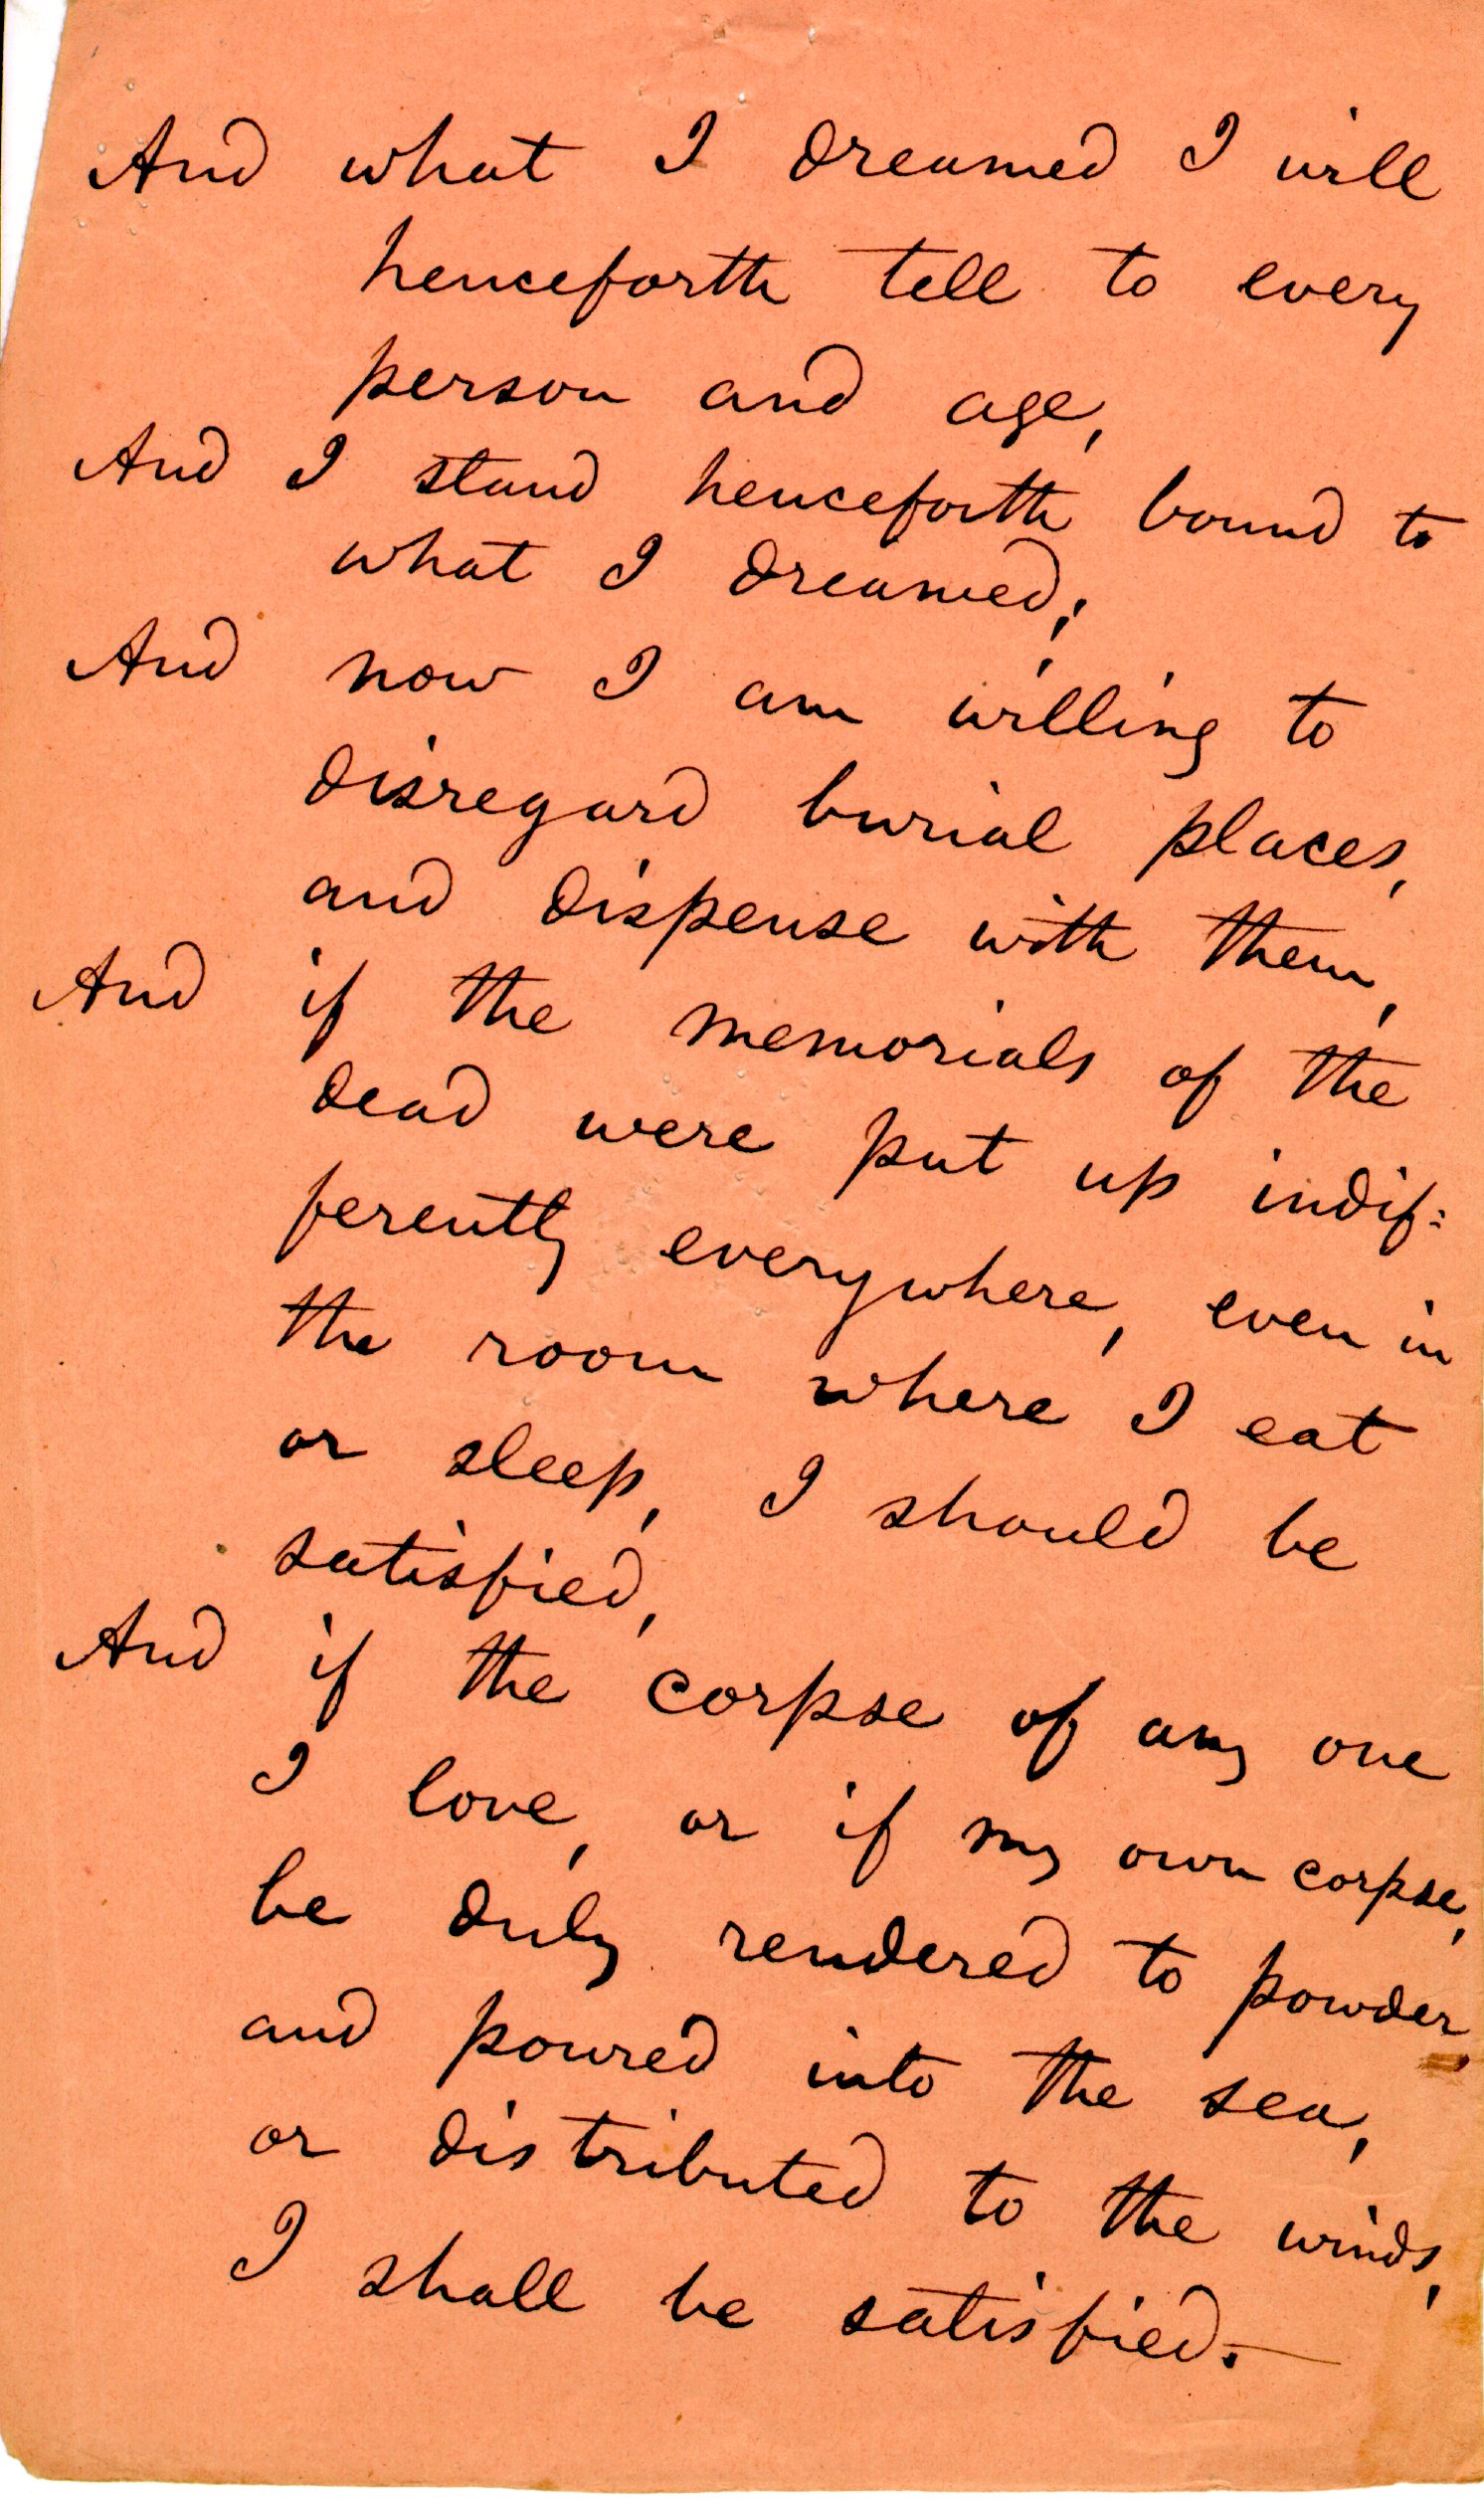 And what I dreamed I will
henceforth tell to every
person and age,
And I stand henceforth bound to
what I dreamed;
And now I am willing to
disregard burial places,
and dispense with them,
And if the memorials of the
dead were put up indif=
ferently everywhere, even in
the room where I eat
or sleep, I should be
satisfied,
And if the corpse of any one
I love, or if my own corpse,
be duly rendered to powder,
and poured into the sea,
or distributed to the winds,
I shall be satisfied.—